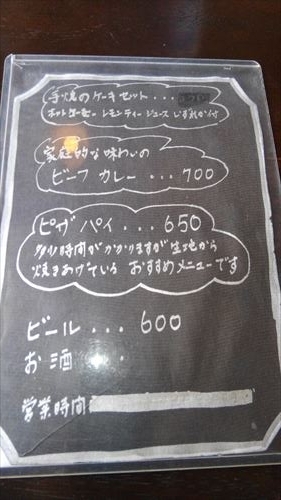 手焼のケーキセット・・・
ホットコーヒー レモンティー ジュース いずれか付
家庭的な味わいの
ビーフカレー・・・700
ピザパイ・・・650
多少時間がかかりますが生地から
焼きあげている おすすめメニューです
ビール・・・600
お酒・・
営業時間